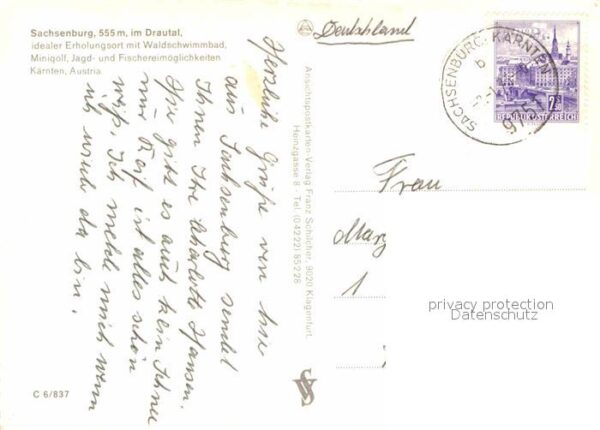 Sachsenburg, 555 m, im Drautal,
idealer Erholungsort mit Waldschwimmbad,
Minigolf, Jagd- und Fischereimöglichkeiten
Kärnten, Austria
Herzliche Grüße von hier
aus Sachsenburg sendet
Ihnen Ihre Charlotte Hansen.
Hier gibt es auch kein Schnee
nur Reif ist alles schön
weiß. Ich melde mich wenn
ich wieder da bin.
C 6/837
Ansichtspostkarten-Verlag Franz Schilcher, 9020 Klagenfurt,
Heinzgasse 8 Tel. (04222) 85228
Deutschland
SACHSENBURG, KÄRNTEN
b
9751
REPUBLIK ÖSTERREICH
Frau
Marg
1
privacy protection
Datenschutz